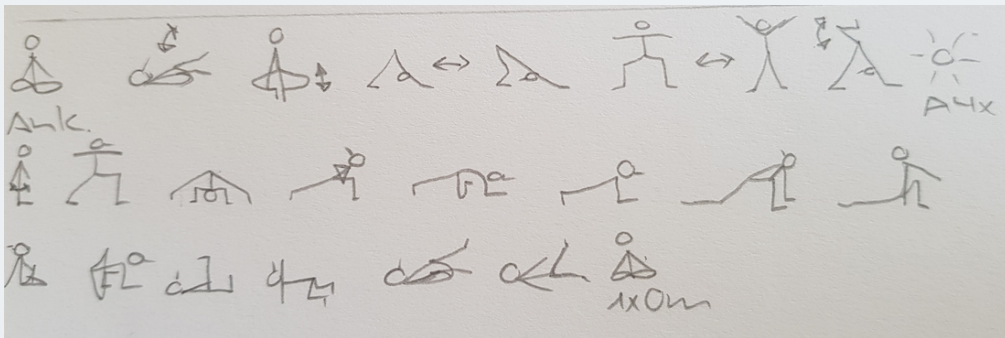 Ank.
A4x
1x Om